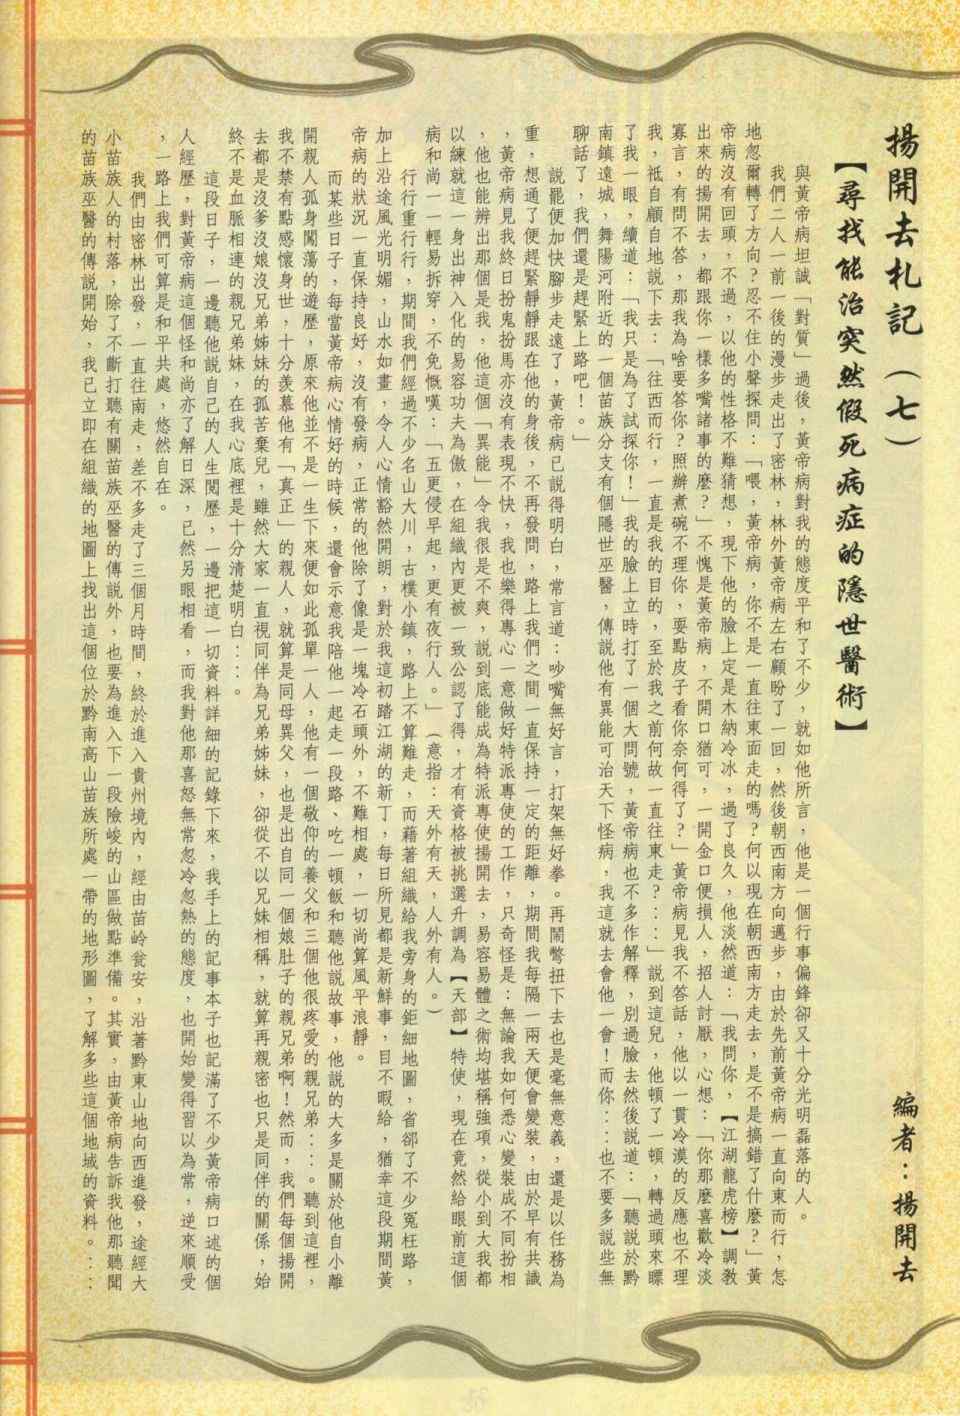 揚開去札記（七）
【尋找能治突然假死病症的隱世醫術】
編者：揚開去
與黃帝病坦誠「對質」過後，黃帝病對我的態度平和了不少，就如他所言，他是一個行事偏鋒卻又十分光明磊落的人。
我們二人一前一後的漫步走出了密林，林外黃帝病左右顧盼了一回，然後朝西南方向邁步，由於先前黃帝病一直向東而行，怎
地忽爾轉了方向？忍不住小聲探問：「喂，黃帝病，你不是一直往東面走的嗎？何以現在朝西南方走去，是不是搞錯了什麼？」黃
帝病沒有回頭，不過，以他的性格不難猜想，現下他的臉上定是木納冷冰，過了良久，他淡然道：「我問你，【江湖龍虎榜】調教
出來的揚開去，都跟你一樣多嘴諸事的麼？」不愧是黃帝病，不開口猶可，一開金口便損人，招人討厭，心想：「你那麼喜歡冷淡
寡言，有問不答，那我為啥要答你？照辦煮碗不理你，耍點皮子看你奈何得了？」黃帝病見我不答話，他以一貫冷漠的反應也不理
我，祗自顧自地說下去：「往西而行，一直是我的目的，至於我之前何故一直往東走？：：」說到這兒，他頓了一頓，轉過頭來瞟
了我一眼，續道：「我只是為了試探你！」我的臉上立時打了一個大問號，黃帝病也不多作解釋，別過臉去然後說道：「聽說於黔
南鎮遠城，舞陽河附近的一個苗族分支有個隱世巫醫，傳說他有異能可治天下怪病，我這就去會他一會！而你：：也不要多說些無
聊話了，我們還是趕緊上路吧！。」
說罷便加快腳步走遠了，黃帝病已說得明白，常言道：吵嘴無好言，打架無好拳。再鬧彆扭下去也是毫無意義，還是以任務為
重，想通了便趕緊靜靜跟在他的身後，不再發問，路上我們之間一直保持一定的距離，期間我每隔一兩天便會變裝，由於早有共識
，黃帝病見我終日扮鬼扮馬亦沒有表現不快，我也樂得專心一意做好特派專使的工作，只奇怪是：無論我如何悉心變裝成不同扮相
，他也能辨出那個是我，他這個「異能」令我很是不爽，說到底能成為特派專使揚開去，易容易體之術均堪稱強項，從小到大我都
以練就這一身出神入化的易容功夫為傲，在組織內更被一致公認了得，才有資格被挑選升調為【天部】特使，現在竟然給眼前這個
病和尚一一輕易拆穿，不免慨嘆：「五更侵早起，更有夜行人。」（意指：天外有天，人外有人。）
行行重行行，期間我們經過不少名山大川，古樸小鎮，路上不算難走，而藉著組織給我旁身的鉅細地圖，省卻了不少冤枉路，
加上沿途風光明媚，山水如畫，令人心情豁然開朗，對於我這初踏江湖的新丁，每日所見都是新鮮事，目不暇給，猶幸這段期間黃
帝病的狀況一直保持良好，沒有發病，正常的他除了像是一塊冷石頭外，不難相處，一切尚算風平浪靜。
而某些日子，每當黃帝病心情好的時候，還會示意我陪他一起走一段路、吃一頓飯和聽他說故事，他說的大多是關於他自小離
開親人孤身闖蕩的遊歷，原來他並不是一生下來便如此孤單一人，他有一個敬仰的養父和三個他很疼愛的親兄弟：：。聽到這裡，
我不禁有點感懷身世，十分羨慕他有「真正」的親人，就算是同母異父，也是出自同一個娘肚子的親兄弟啊！然而，我們每個揚開
去都是沒爹沒娘沒兄弟姊妹的孤苦棄兒，雖然大家一直視同伴為兄弟姊妹，卻從不以兄妹相稱，就算再親密也只是同伴的關係，始
終不是血脈相連的親兄弟妹，在我心底裡是十分清楚明白：：。
這段日子，一邊聽他說自己的人生閱歷，一邊把這一切資料詳細的記錄下來，我手上的記事本子也記滿了不少黃帝病口述的個
人經歷，對黃帝病這個怪和尚亦了解日深，已然另眼相看，而我對他那喜怒無常忽冷忽熱的態度，也開始變得習以為常，逆來順受
，一路上我們可算是和平共處，悠然自在。
我們由密林出發，一直往南走，差不多走了三個月時間，終於進入貴州境內，經由苗岭瓮安，沿著黔東山地向西進發，途經大
小苗族人的村落，除了不斷打聽有關苗族巫醫的傳說外，也要為進入下一段險峻的山區做點準備。其實，由黃帝病告訴我他那聽聞
的苗族巫醫的傳說開始，我已立即在組織的地圖上找出這個位於黔南高山苗族所處一帶的地形圖，了解多些這個地域的資料。：：